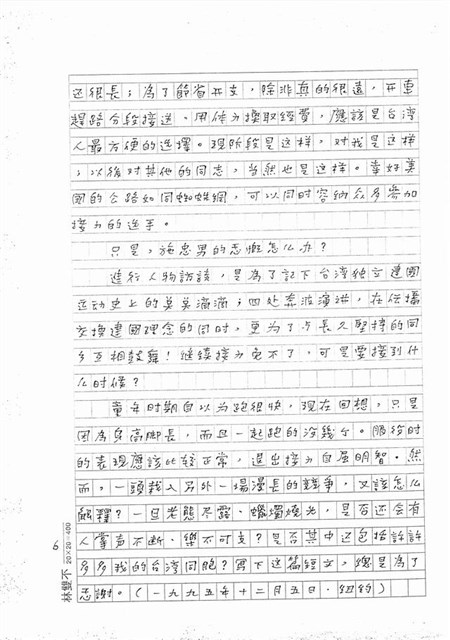 还很長；為了節省开支，除非真的很遠，开車
趕路分段接送。用体力換取經費，應該是台湾
人最方便的選擇。現階段是这样，对我是这样
；以後对其他的同志，当然也是这样。幸好美
國的公路如同蜘蛛網，可以同时容納众多参加
接力的选手。
只是，施忠男的感慨怎么办？
進行人物訪談，是為了記下台湾独立建國
运动史上的点点滴滴；四处奔波演讲，在传播
交換建國理念的同时，更為了与長久堅持的同
乡互相鼓舞！继续接力免不了，可是要接到什
么时候？
童年时期自以為跑很快，現在回想，只是
因為身高脚長，而且一起跑的沒幾个。服役时
的表現應該比较正常，退出接力自屬明智。然
而，一頭栽入另外一場漫長的競爭，又該怎么
解釋？一旦老態尽露、蠟燭燒光，是否还会有
人掌声不断，樂不可支？是否其中还包括許許
多多我的台湾同胞？寫下这篇短文，總是為了
感謝。（一九九五年十二月五日·紐約）
6
林雙不 20×20=400